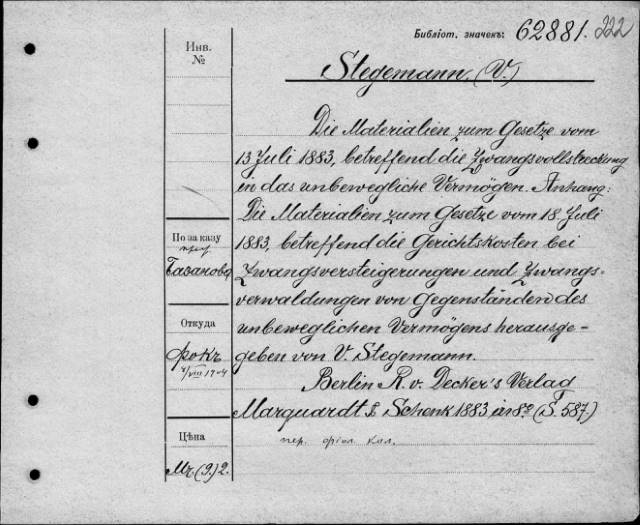 Библіот. значекъ: 62881. 222
Инв.
№
Stegemann (V.)
Die Materialien zum Gesetze vom
13 Juli 1883, betreffend die Zwangsvollstreckung
in das unbewegliche Vermögen. Anhang:
Die Materialien zum Gesetze vom 18 Juli
1883, betreffend die Gerichtskosten bei
Zwangsversteigerungen und Zwangs-
verwaldungen von Gegenständen des
unbeweglichen Vermögens herausge-
geben von V. Stegemann.
Berlin R. v. Decker's Verlag
Marquardt & Schenk 1883 in 8º (S. 587.)
По заказу
проф.
Базанова
Откуда
Фокъ
4/VIII 1904
Цѣна
пер. фіол. кол.
Mk (9.) 2.